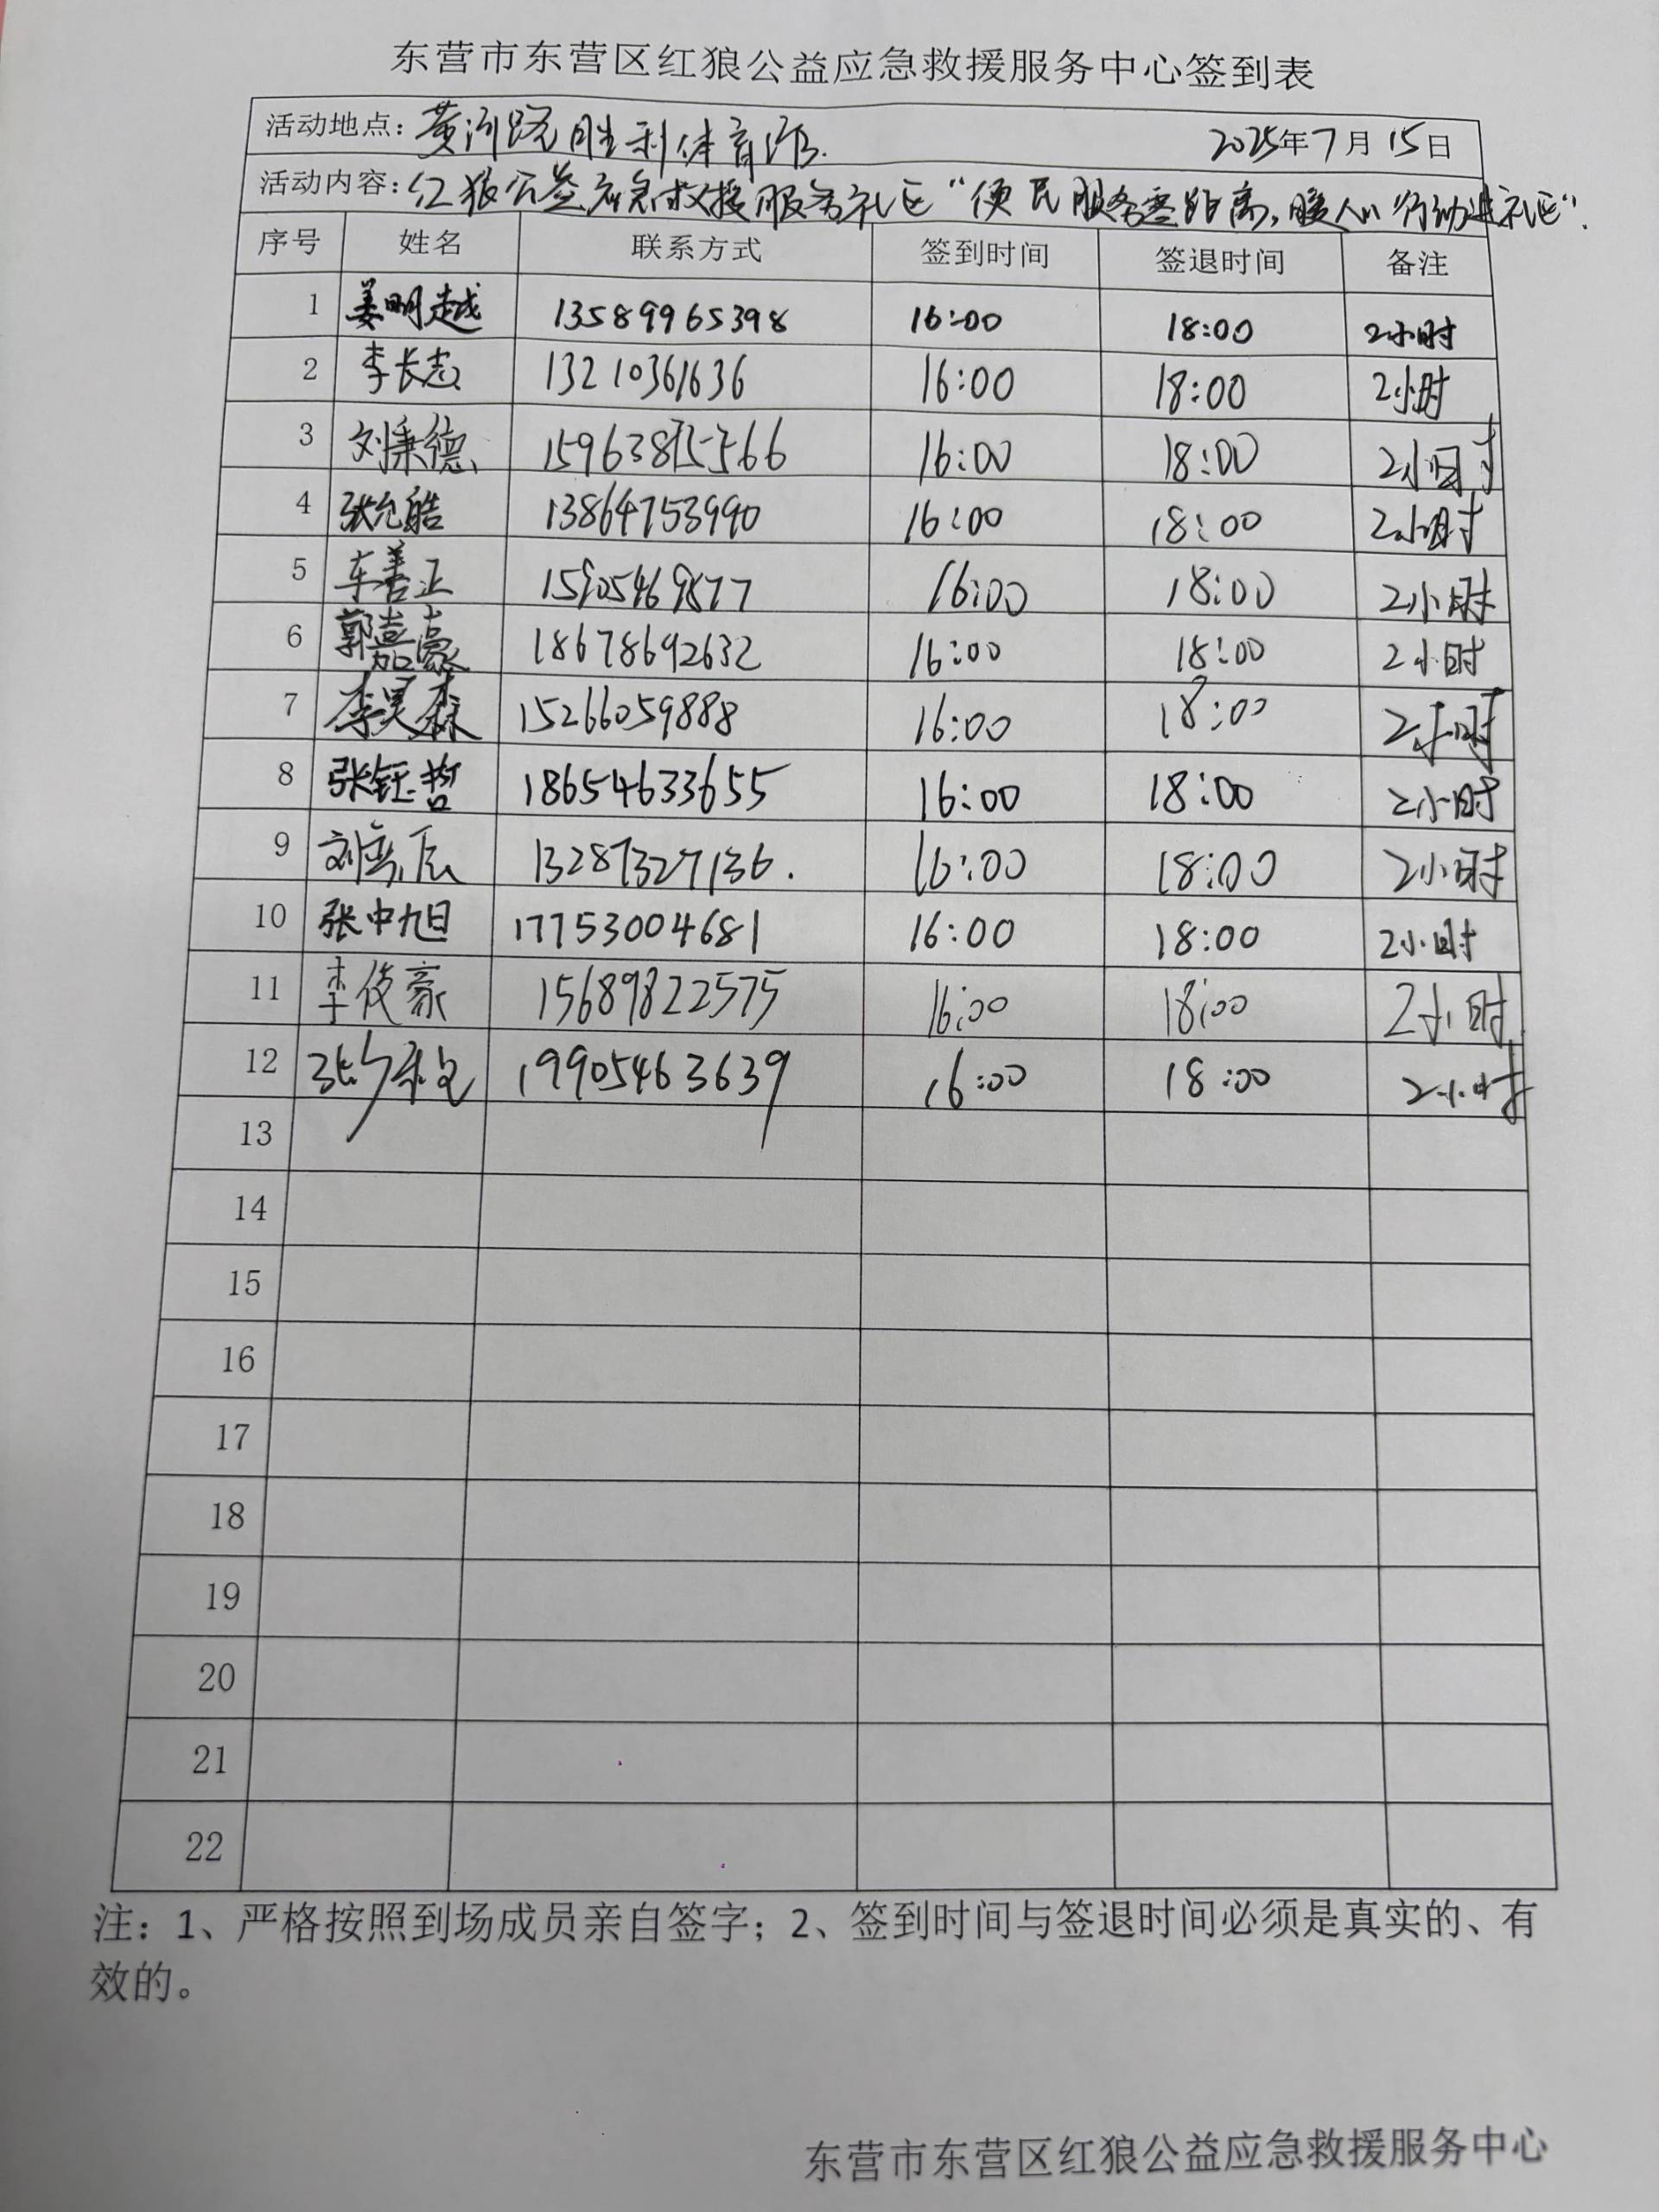 东营市东营区红狼公益应急救援服务中心签到表
活动地点：黄河路胜利体育 2025年7月15日
活动内容：红狼公益应急救援服务社区"便民服务零距离，暖人心行动进社区".
序号 姓名 联系方式 签到时间 签退时间 备注
1 姜明越 13589965398 16:00 18:00 2小时
2 李长志 13210361636 16:00 18:00 2小时
3 刘秉德 16:00 18:00 2小时
4 张允皓 13864753990 16:00 18:00 2小时
5 车善正 16:00 18:00 2小时
6 郭嘉豪 18678692632 16:00 18:00 2小时
7 李昊森 15266059888 16:00 18:00 2小时
8 张钰哲 18654633655 16:00 18:00 2小时
9 刘 辰 13287327136. 16:00 18:00 2小时
10 张中旭 17753004681 16:00 18:00 2小时
11 李俊豪 15689822575 16:00 18:00 2小时
12 19905463639 16:00 18:00 2小时
13
14
15
16
17
18
19
20
21
22
注：1、严格按照到场成员亲自签字；2、签到时间与签退时间必须是真实的、有
效的。
东营市东营区红狼公益应急救援服务中心